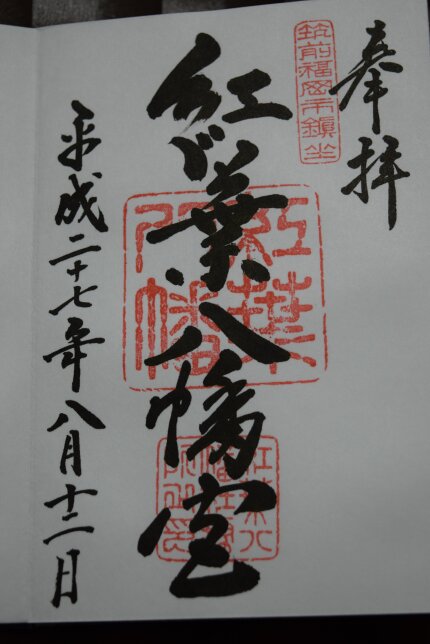 奉拝
筑前福岡市鎮坐
紅葉八幡宮
紅葉
八幡
平成二十七年八月十二日